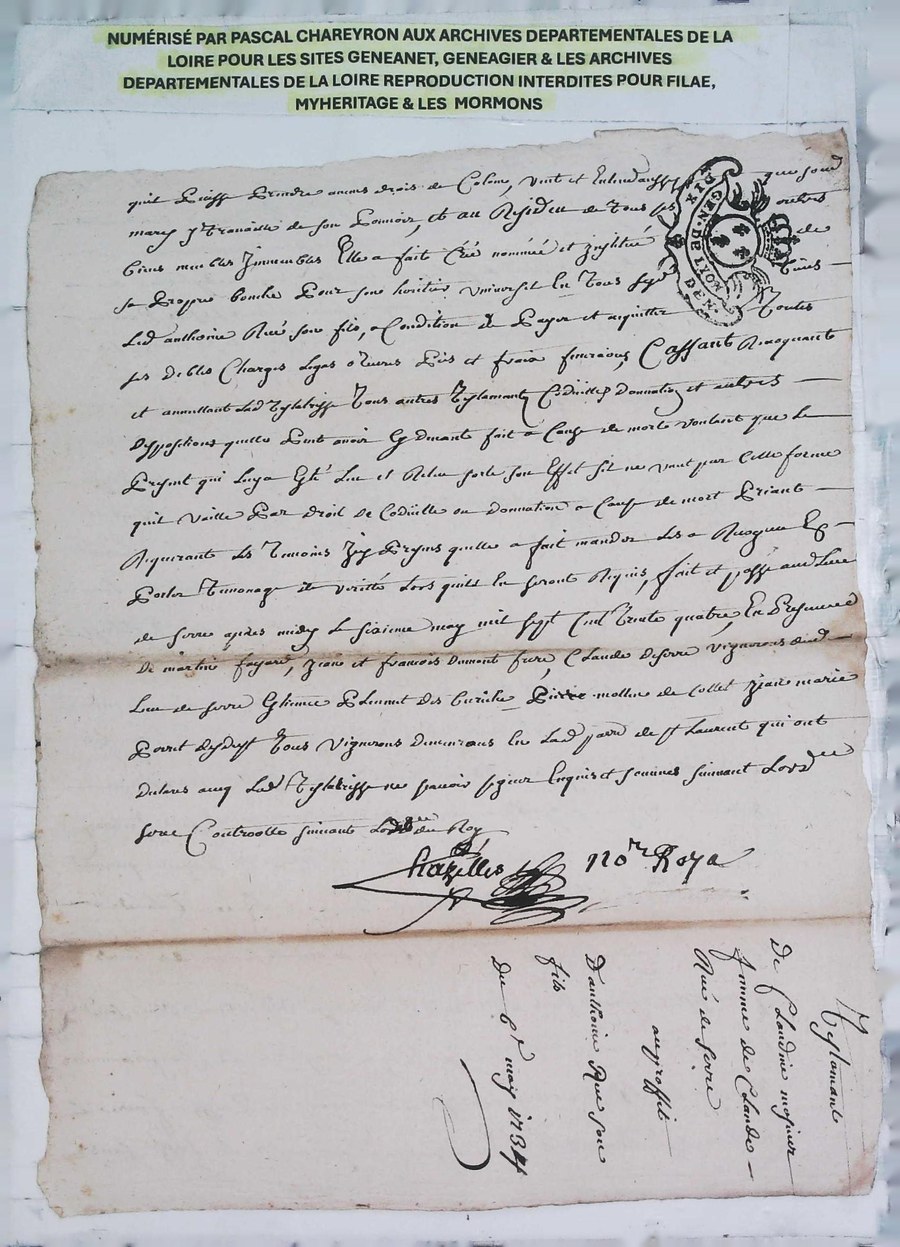 NUMÉRISÉ PAR PASCAL CHAREYRON AUX ARCHIVES DEPARTEMENTALES DE LA
LOIRE POUR LES SITES GENEANET, GENEAGIER & LES ARCHIVES
DEPARTEMENTALES DE LA LOIRE REPRODUCTION INTERDITES POUR FILAE,
MYHERITAGE & LES MORMONS
quil Puisse Prendre aucuns drois de Colone, veut et Entend aussy que sond
mary y travaille de son Pouvoir, et au Residu de tous ses autres
biens meubles Immeubles Elle a fait Créé nommée et Institué de
sa Propre bouche Pour son héritier universel En tous ses biens
Led anthoine Rué son fils, a Condition de Payer et aquitter toutes
ses debtes Charges Legas œuvres Pies et frais funeraous, Cassant Revoquant
et annullant Lad testatrisse tous autres testamants Codicilles donnations et autres
disppositions quelle Peut avoir Cy devant fait a Cause de morts voulant que Le
Present qui Luy a Eté Lue et Relue sorte son Effet sil ne vaut par Cette forme
quil vaille Par droit de Codicille ou donnation a Cause de mort Priant
Requerant Les temoins Icy Presens quelle a fait mander Les a Recognu Et
Porter temonage de verité Lors quils En seront Requis, fait et passé aud Lieu
de serre apres midy Le sixieme may mil sept Cent trente quatre, En Presence
de martin fayard, Jean et francois dumont frere, Claude deserre vignerons dud
Lieu de serre Etienne Plennet des Pierre mollin de Collet Jean marie
Porret desd tous vignerons demeurans En Lad parr de st Laurent qui ont
declares avec Lad testatrisse ne savoir signer Enquis et sommés suivant Lord
sera Controolle suivant Lord du Roy
Chazelles nore Roya
DIX
GEN. DE LYON
DEN.
Testamant
De Claudine mosnier
femme de Claude
Rué de serre
au proffit
D'anthoine Rue son
fils
Du 6e may 1734